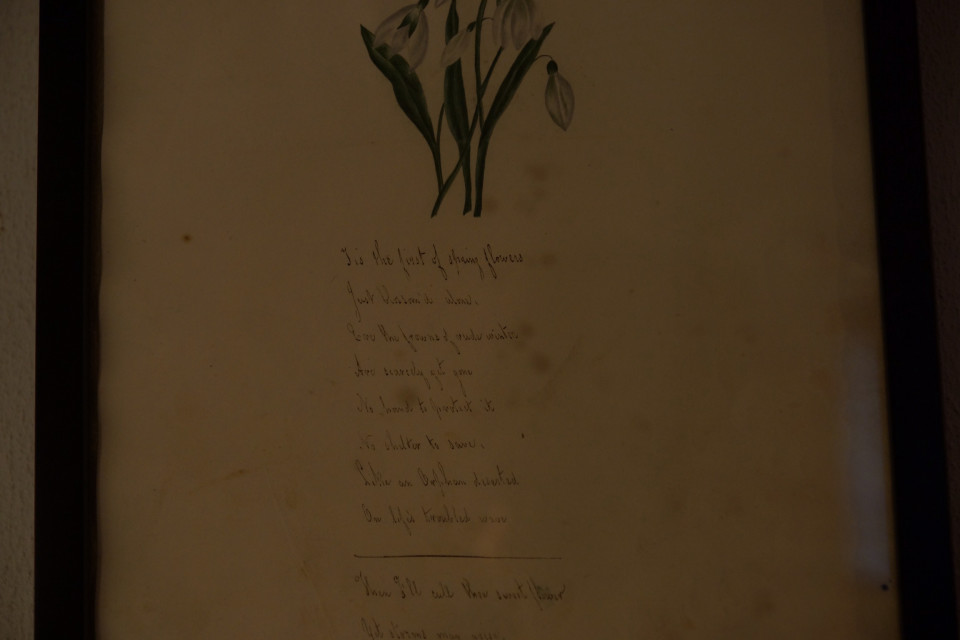 Tis the first of spring flowers
Just blossom'd alone.
Ere the frowns of rude winter
Are scarcely yet gone
No hand to protect it
No shelter to save.
Like an Orphan deserted
On life's troubled wave
Then I'll call thee sweet flower
Yet storms may